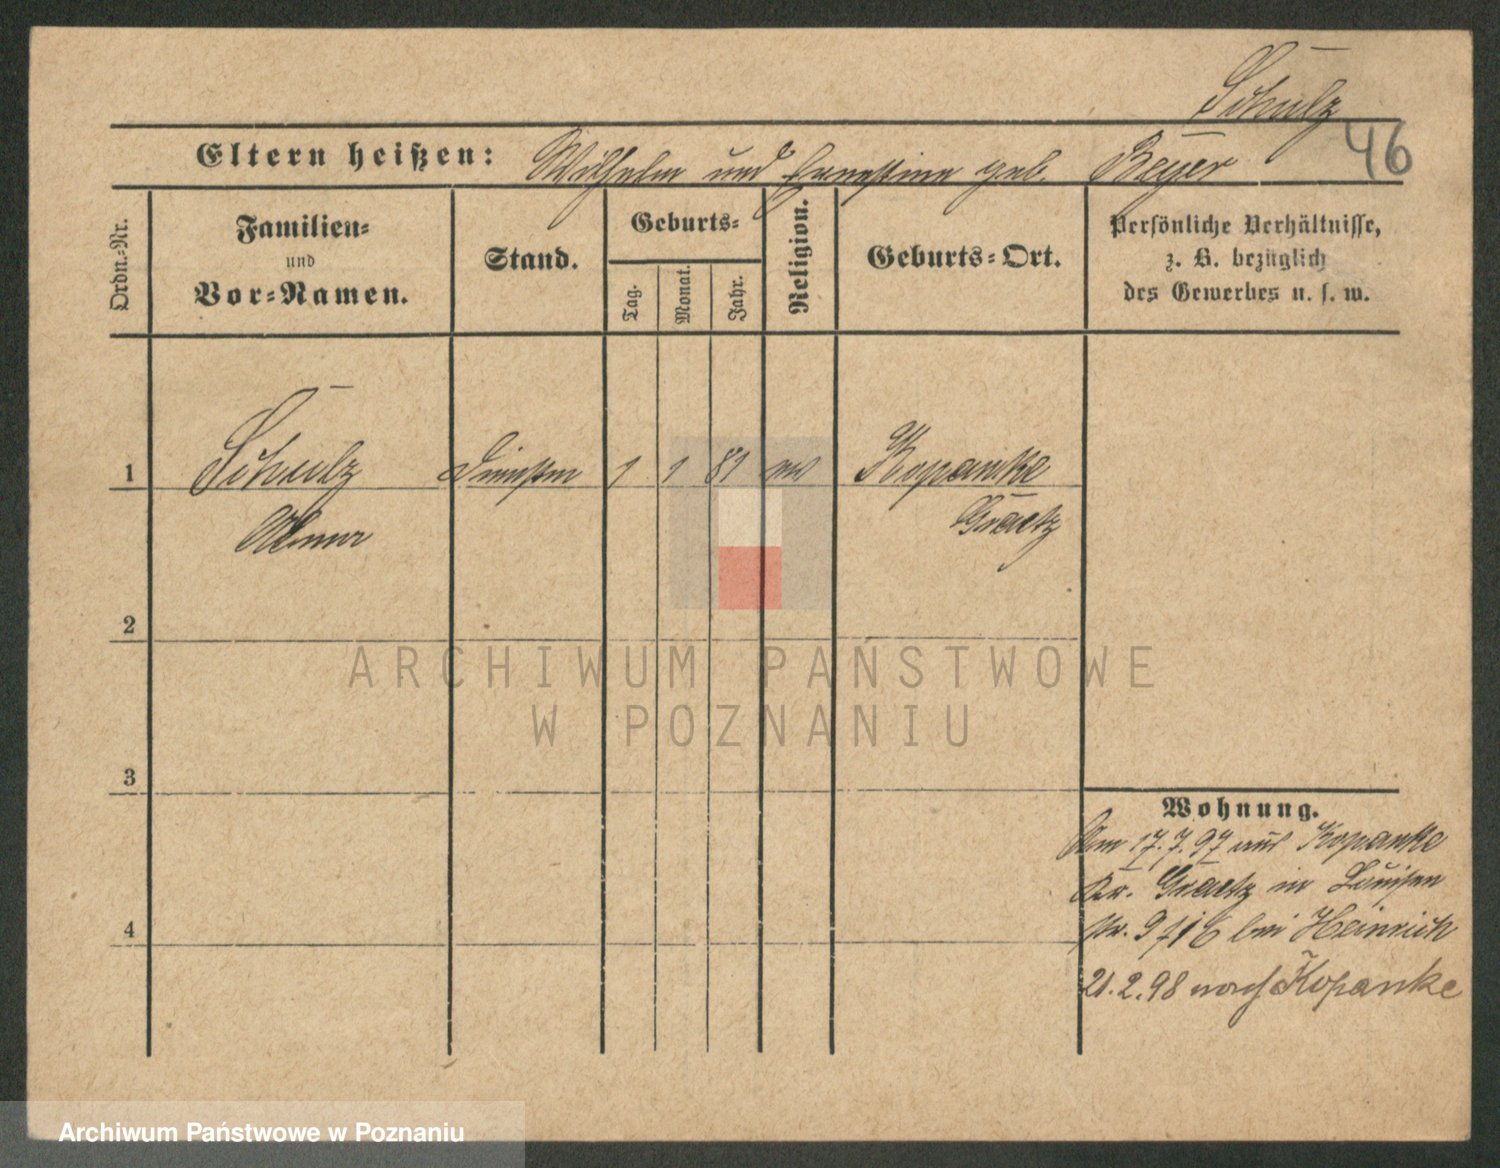 Schulz
46
Eltern heißen: Wilhelm und Ernestine geb. Beyer
Ordn.-Nr.
Familien-
und
Vor-Namen.
Stand.
Geburts-
Tag.
Monat.
Jahr.
Religion.
Geburts-Ort.
Persönliche Verhältnisse,
z. B. bezüglich
des Gewerbes u. s. w.
1 Schulz 1 1 81 ev Kopanke
Graetz
2
3
4
Wohnung.
Am 17.7.97 aus Kopanke
Kr. Graetz in Louisen
str. 9 bei Heinrich
21.2.98 nach Kopanke
ARCHIWUM PAŃSTWOWE
W POZNANIU
Archiwum Państwowe w Poznaniu